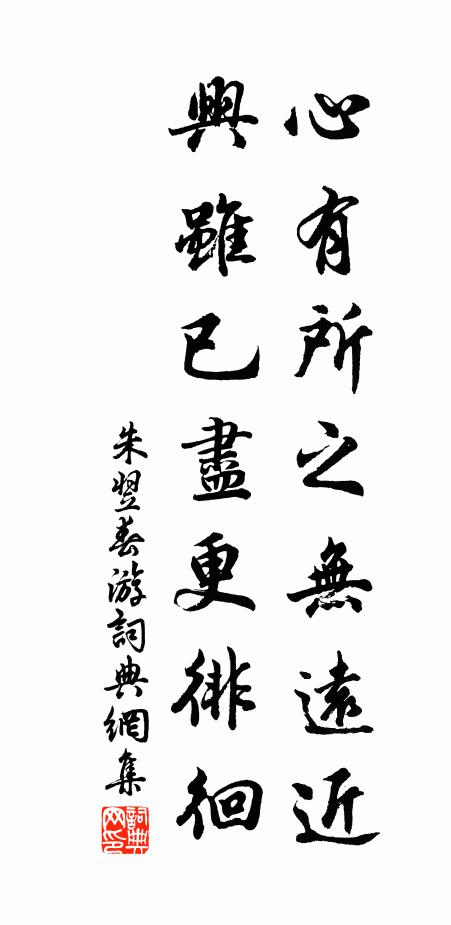 心有所之無遠近
興雖已盡更徘徊
朱翌春游詞典網集
詞典網印